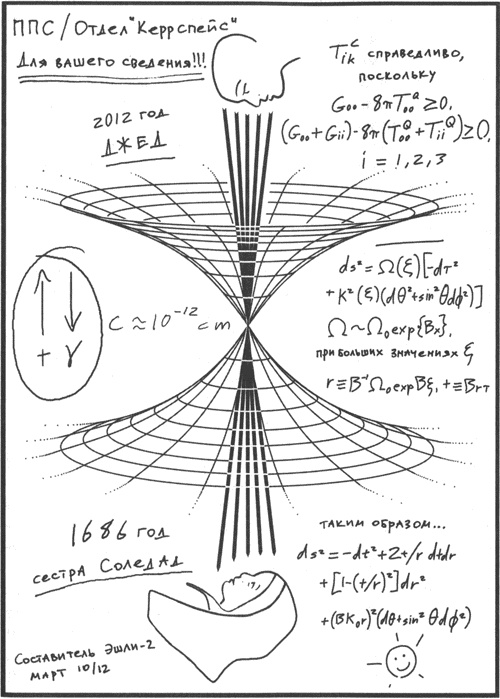 ППС/Отдел "Керрспейс"
Для вашего сведения!!!
2012 год
ДЖЕД
T_ik^C справедливо,
поскольку
G₀₀ - 8πT₀₀^Q ≥ 0,
(G₀₀ + Gii) - 8π(T₀₀^Q + Tii^Q) ≥ 0,
i = 1, 2, 3
ds² = Ω(ξ)[-dτ²
+ K²(ξ)(dθ² + sin²θdφ²)]
Ω ~ Ω₀exp{Bx},
при больших значениях ξ
r ≡ B⁻¹Ω₀expBξ, t ≡ Brτ
↑ ↓
+ γ
C ≈ 10⁻¹² cm
1686 год
сестра Соледад
таким образом...
ds² = -dt² + 2t/r dtdr
+ [1-(t/r)²]dr²
+ (BK₀r)²(dθ + sin²θdφ²)
Составитель Эшли-2
март 10/12